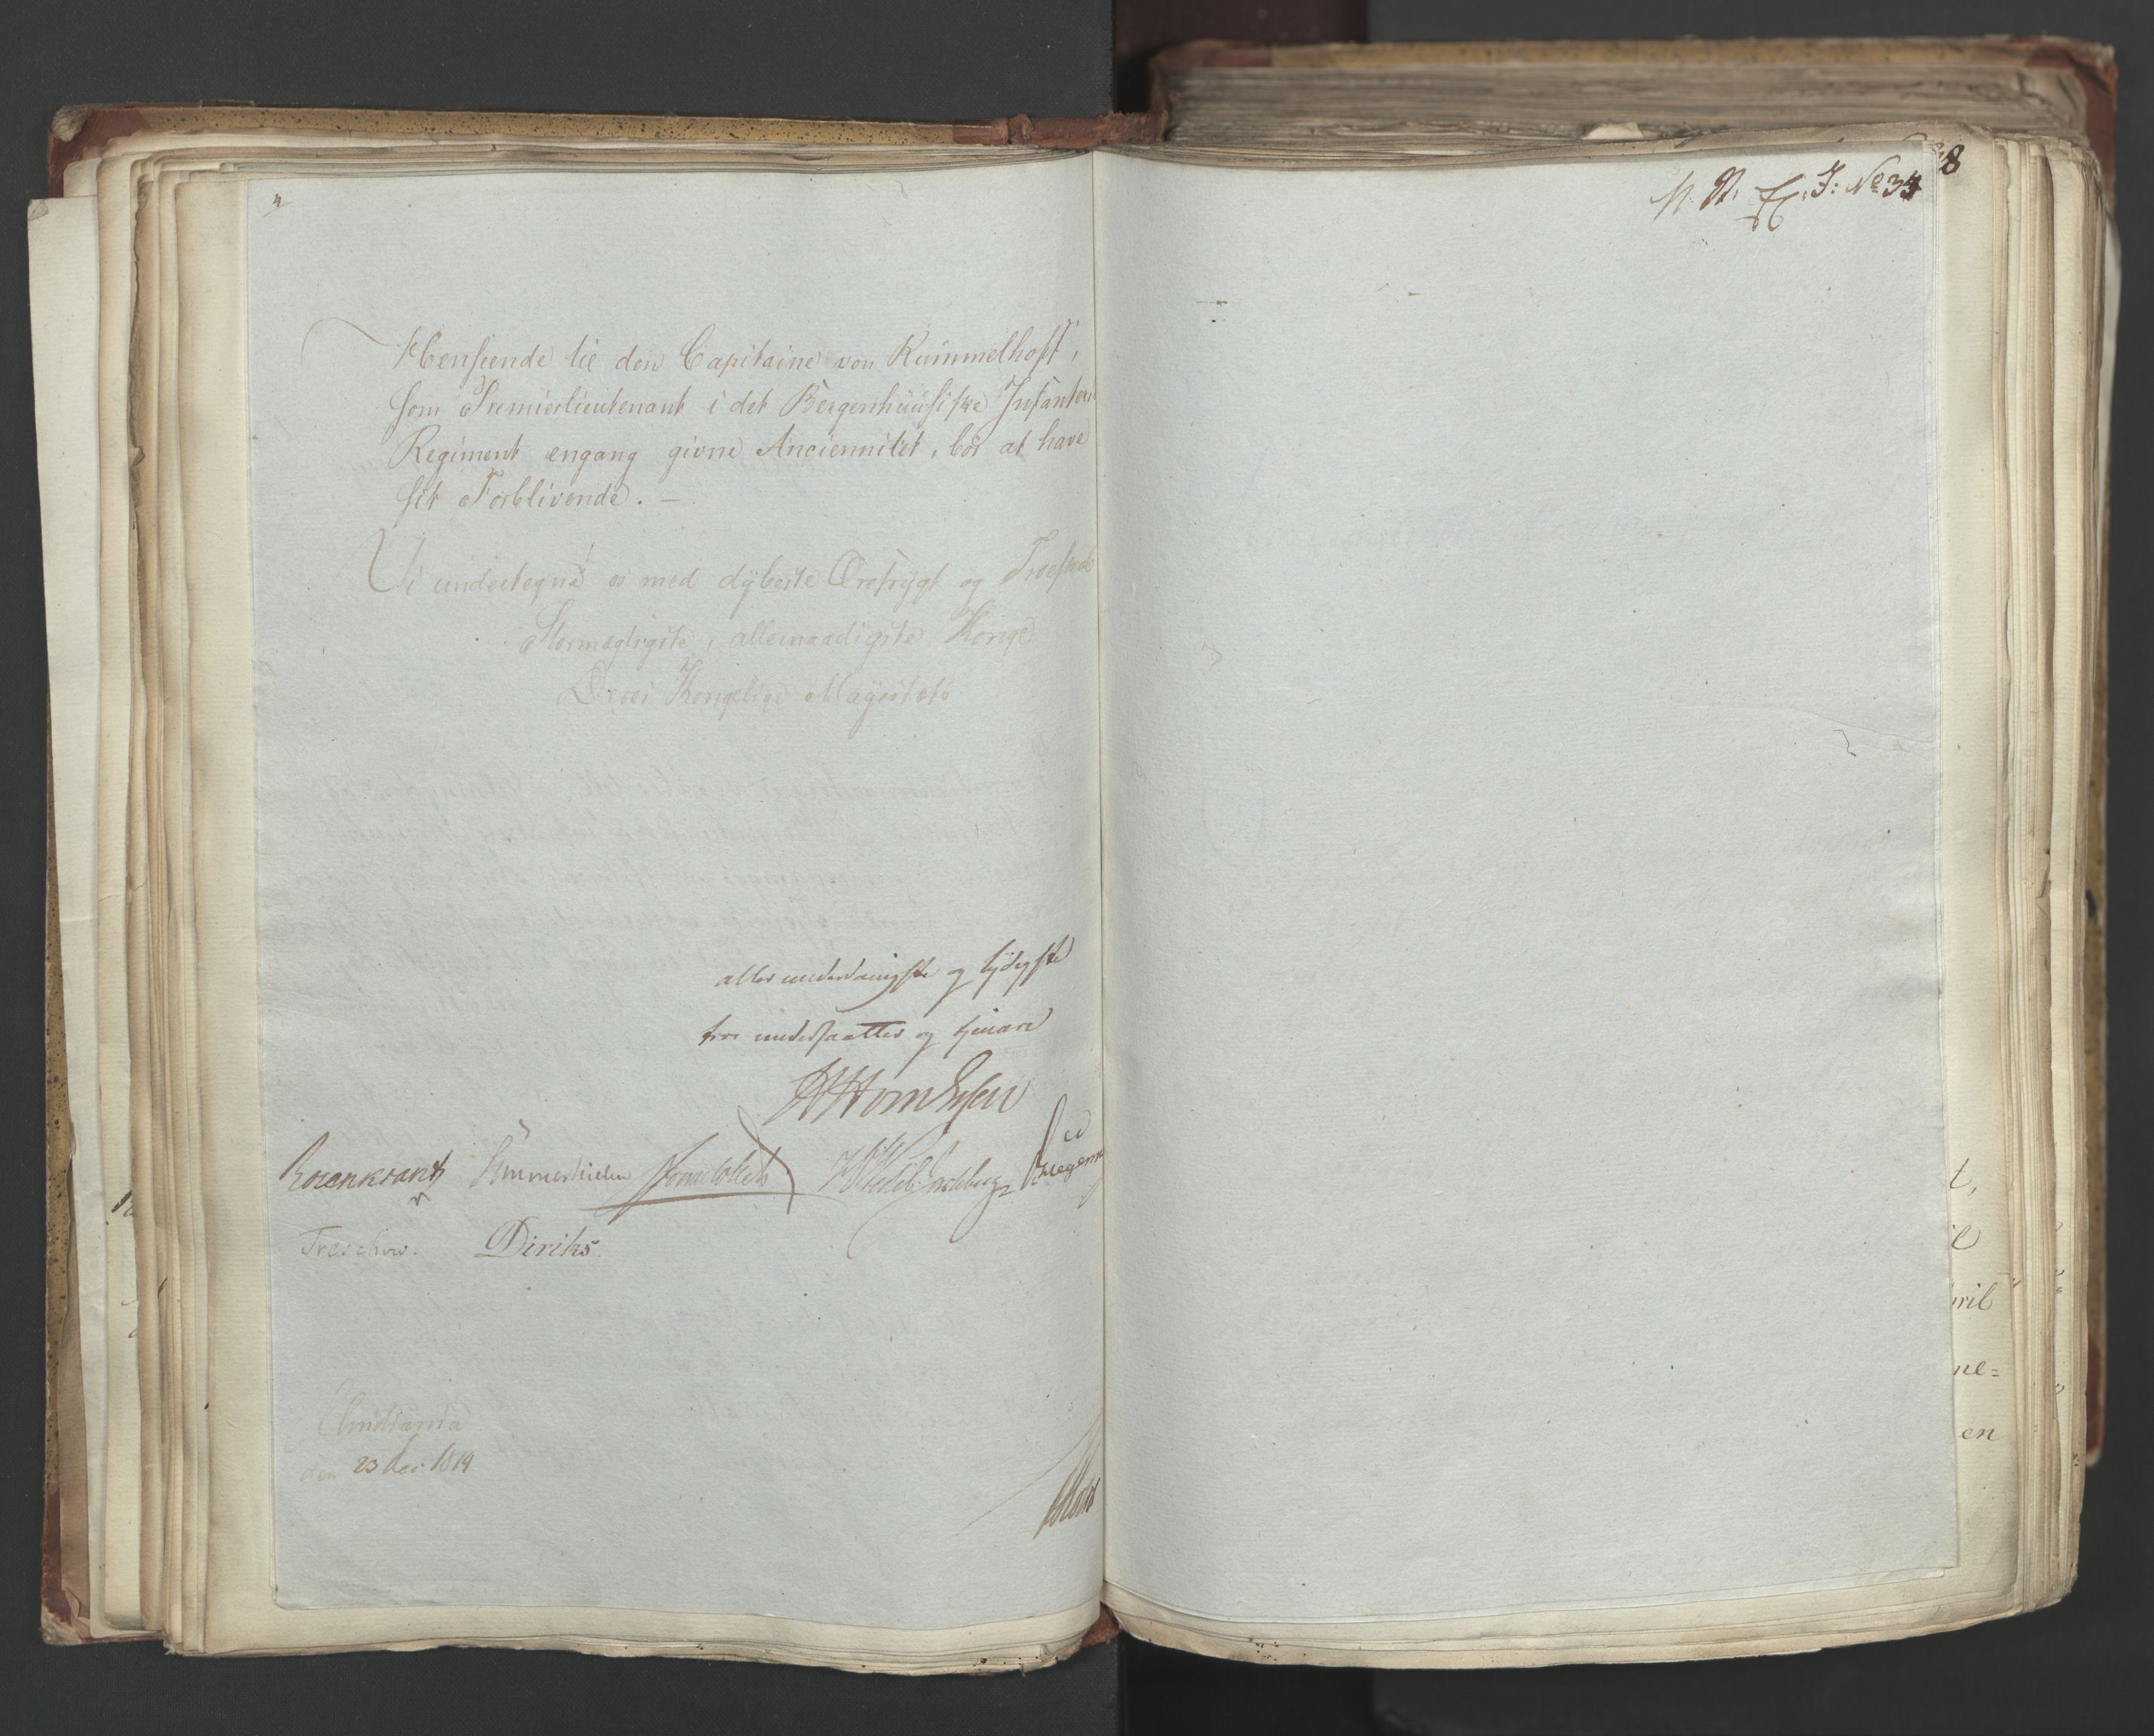 Henseende til den Capitaine von Rummelhoff,
som Premierlieutenant i det Bergenhuusiske Infanterie
Regiment engang givne Anciennitet, bör at have
sit Forblivende. —
Vi undertegne os med dybeste Ærefrygt og Troeskab
Stormægtigste, allernaadigste Konge
Deres Kongelige Majestæts
allerunderdanigste og lydigste
troe undersaatter og tjenere
Rosenkrantz Sommerhielm
Treschow. Diriks
Christiania
den 23 Dec 1814
Motz
N. N. J: No 34
t,
ril
ne=
en